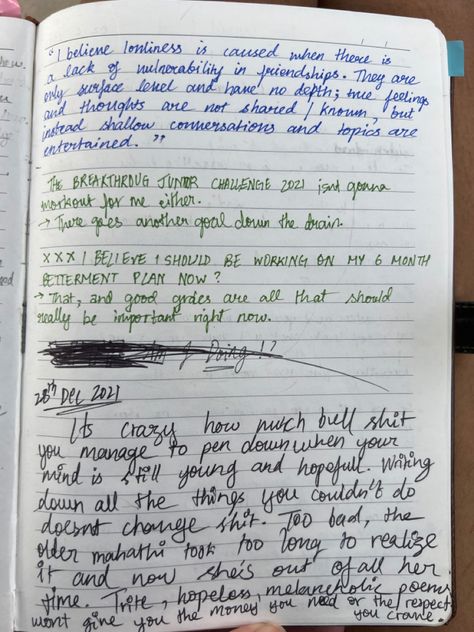 "I believe lonliness is caused when there is
a lack of vulnerability in friendships. They are
only surface level and have no depth; true feelings
and thoughts are not shared / known, but
instead shallow conversations and topics are
entertained."
The BREAKTHROUG JUNIOR CHALLENGE 2021 isnt gonna
workout for me either.
→ There goes another goal down the drain.
X X X I BELIEVE I SHOULD BE WORKING ON MY 6 MONTH
BETTERMENT PLAN NOW?
→ That, and good grades are all that should
really be important right now.
Am I Doing!?
28th Dec 2021
Its crazy how much bull shit
you manage to pen down when your
mind is still young and hopefull. Writing
down all the things you couldn't do
doesnt change shit. Too bad, the
older mahathi took too long to realize
it and now she's out of all her
time. Trite, hopeless, melancholic poems
wont give you the money you need or the respect
you crave.